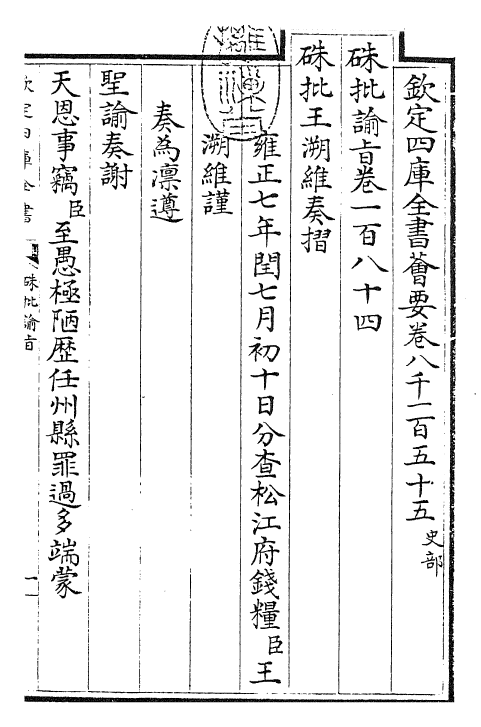 欽定四庫全書薈要卷八千二百五十五 史部
硃批諭旨卷一百八十四
硃批王溯維奏摺
雍正七年閏七月初十日分查松江府錢糧臣王
溯維謹
奏為凜遵
聖諭奏謝
天恩事竊臣至愚極陋歷任州縣罪過多端蒙
欽定四庫全書 硃批諭旨 一